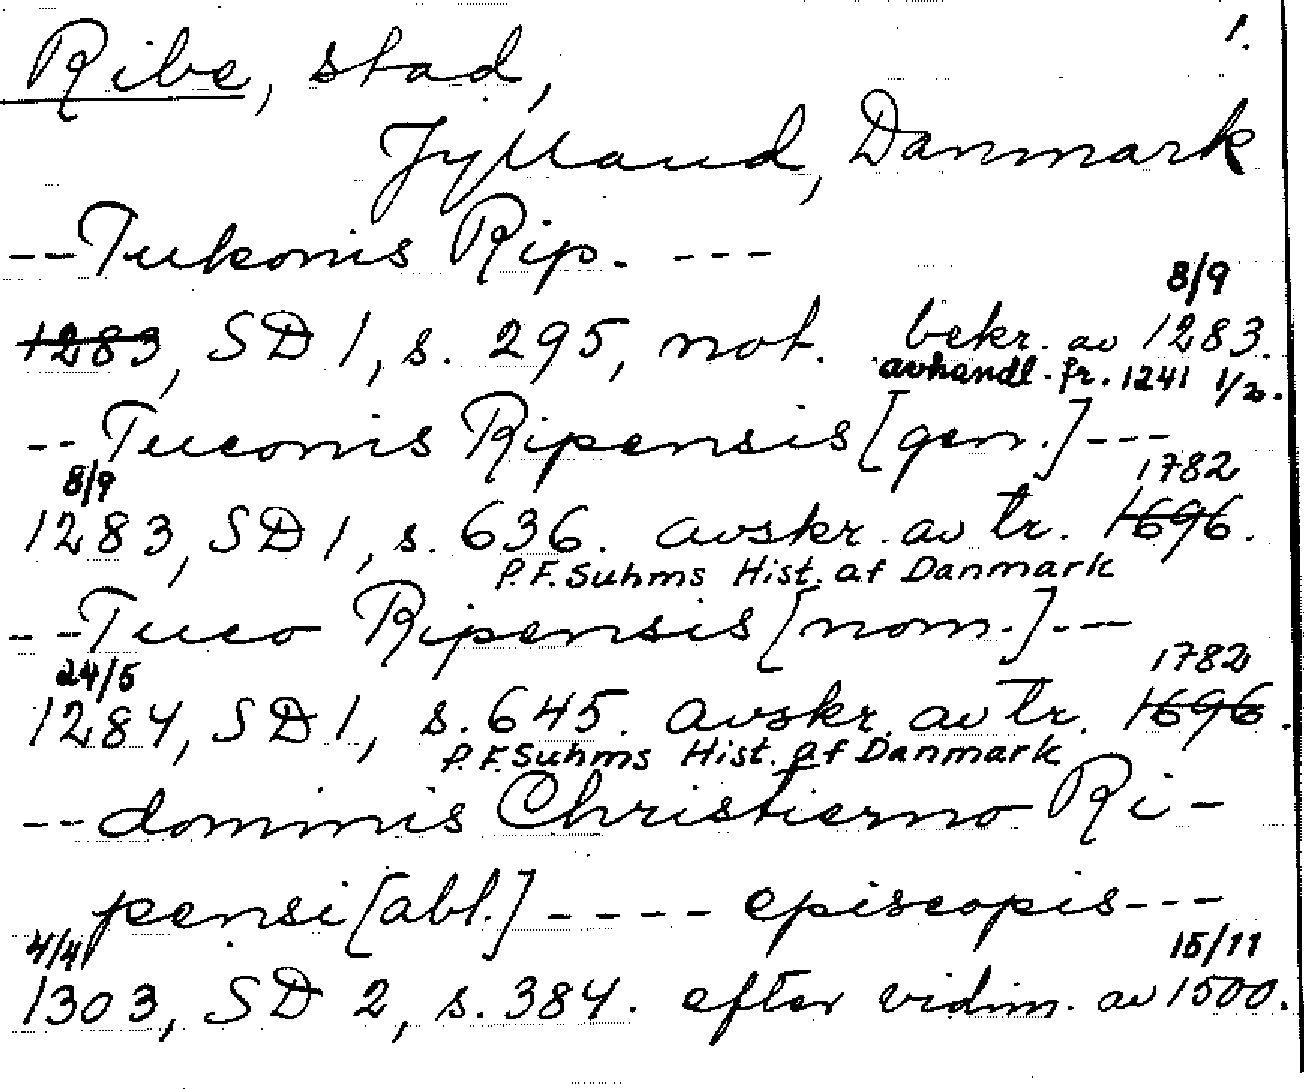 1.
Ribe, stad,
Jylland, Danmark
--Tukonis Rip. ---
8/9
1283, SD 1, s. 295, not. bekr. av 1283.
avhandl. fr. 1241 1/2.
-- Tuconis Ripensis [gen.]---
8/9 1782
1283, SD 1, s. 636. avskr. av tr. 1696.
P.F. Suhms Hist. af Danmark
--Tuco Ripensis [nom.]---
24/5 1782
1284, SD 1, s. 645. avskr. av tr. 1696.
P.F. Suhms Hist. af Danmark
--dominis Christierno Ri-
pensi [abl.] ---- episcopis---
4/4 15/11
1303, SD 2, s. 384. efter vidim. av 1500.